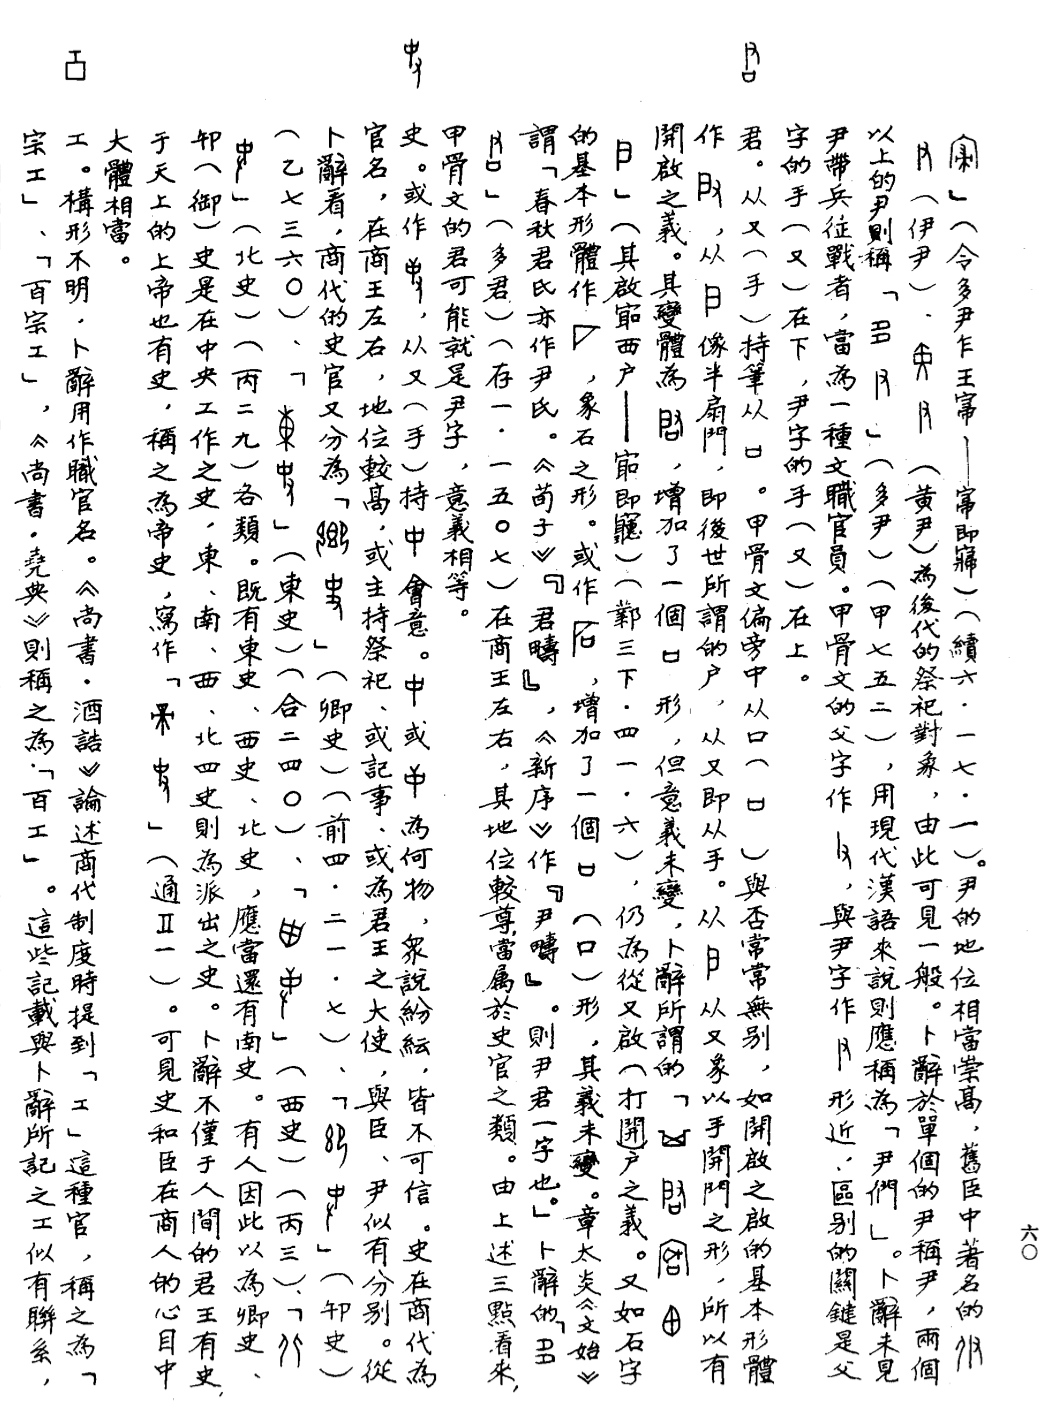 六〇
」（令多尹乍王𡪢——𡪢即寢）（續六·一七·一）。尹的地位相當崇高，舊臣中著名的
（伊尹）、（黄尹）為後代的祭祀對象，由此可見一般。卜辭於單個的尹稱尹，兩個
以上的尹則稱「」（多尹）（甲七五二），用現代漢語來說則應稱為「尹們」。卜辭未見
尹帶兵征戰者，當為一種文職官員。甲骨文的父字作，與尹字作形近、區别的關鍵是父
字的手（又）在下，尹字的手（又）在上。
君。从又（手）持筆从口。甲骨文偏旁中从口（口）與否常常無别，如開啟之啟的基本形體
作，从像半扇門，即後世所謂的户，从又即从手。从从又象以手開門之形，所以有
開啟之義。其變體為，增加了一個口形，但意義未變，卜辭所謂的「
」（其啟西户——）（鄴三下·四一·六），仍為從又啟（打開）户之義。又如石字
的基本形體作，象石之形。或作，增加了一個口（口）形，其義未變。章太炎《文始》
謂「春秋君氏亦作尹氏。《荀子》『君疇』，《新序》作『尹疇』。則尹君一字也。」卜辭的「
」（多君）（存一·一五〇七）在商王左右，其地位較尊，當属於史官之類。由上述三點看來，
甲骨文的君可能就是尹字，意義相等。
史。或作，从又（手）持中會意。中或為何物，衆說紛紜，皆不可信。史在商代為
官名，在商王左右，地位較高，或主持祭祀、或記事、或為君王之大使，與臣、尹似有分别。從
卜辭看，商代的史官又分為「」（卿史）（前四·二一·七）、「」（卸史）
（乙七三六〇）、「」（東史）（合二四〇）、「」（西史）（丙三）、「
」（北史）（丙二九）各類。既有東史、西史、北史，應當還有南史。有人因此以為卿史、
卸（御）史是在中央工作之史，東、南、西、北四史則為派出之史。卜辭不僅于人間的君王有史，
于天上的上帝也有史，稱之為帝史，寫作「」（通Ⅱ一）。可見史和臣在商人的心目中
大體相當。
工。構形不明，卜辭用作職官名。《尚書·酒誥》論述商代制度時提到「工」這種官，稱之為「
宗工」、「百宗工」，《尚書·堯典》則稱之為「百工」。這些記載與卜辭所記之工似有聯系，